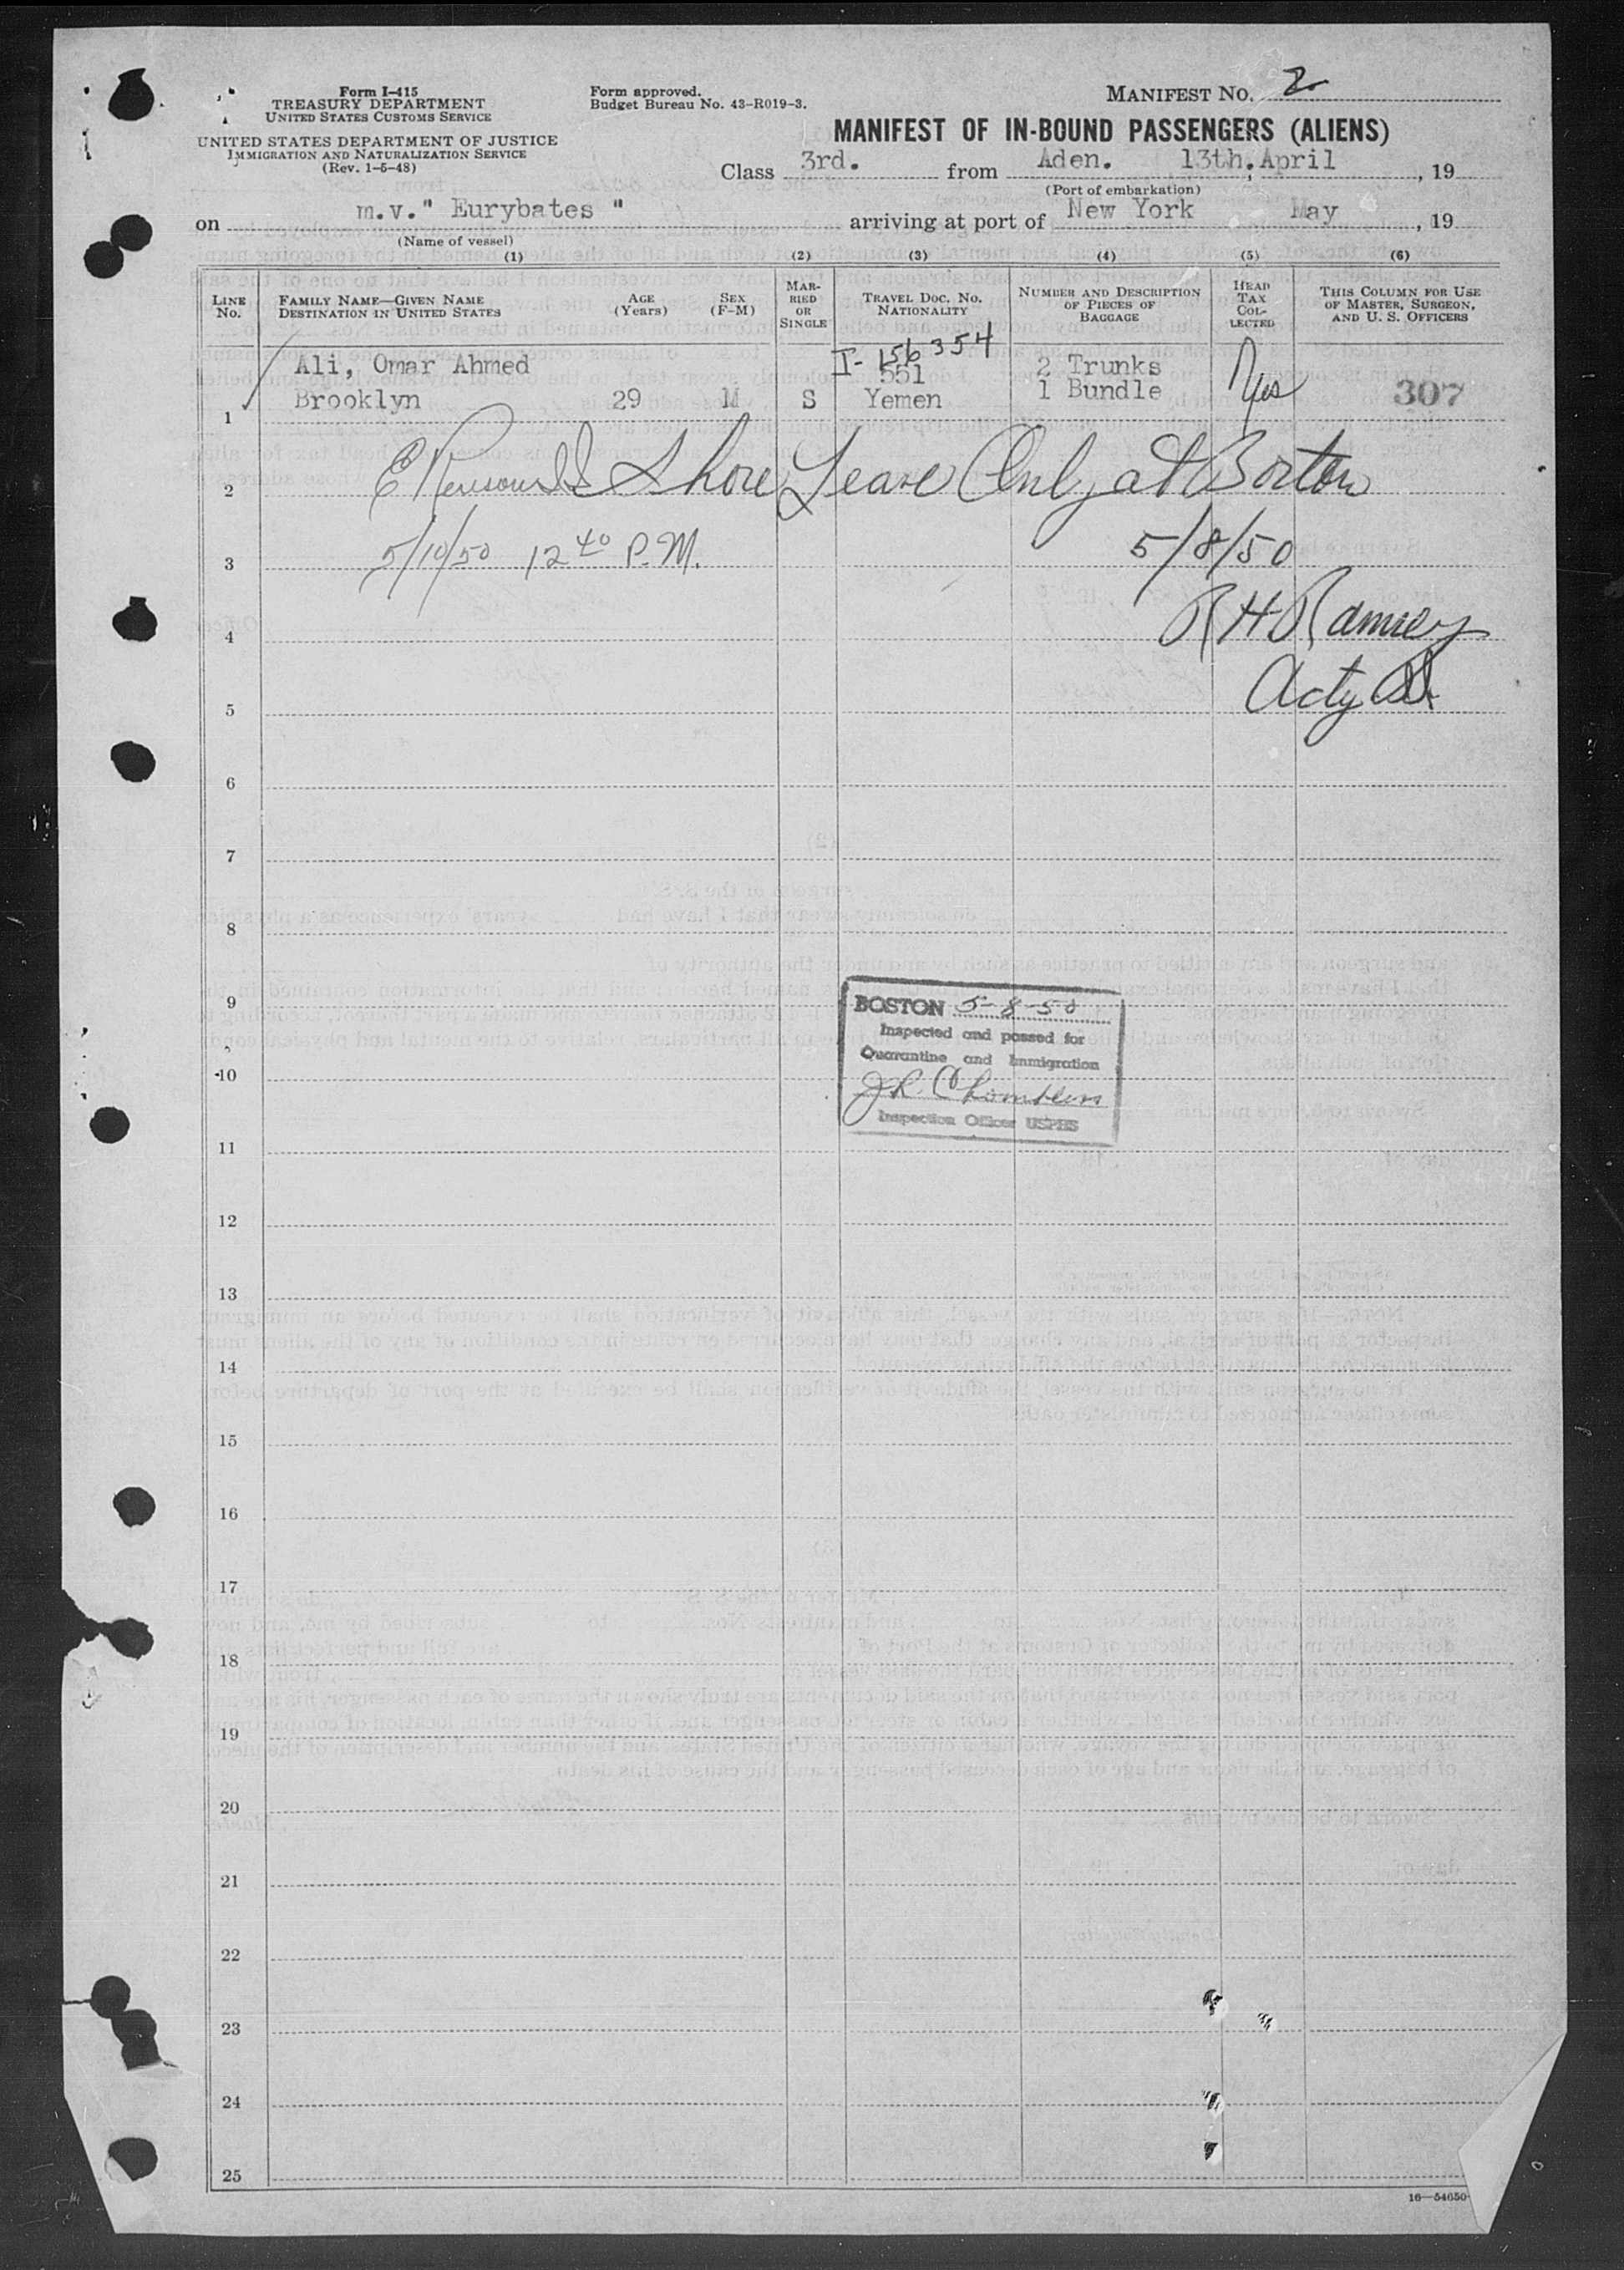 Form I-415
TREASURY DEPARTMENT
UNITED STATES CUSTOMS SERVICE
UNITED STATES DEPARTMENT OF JUSTICE
IMMIGRATION AND NATURALIZATION SERVICE
(Rev. 1-5-48)
Form approved.
Budget Bureau No. 43-R019-3.
MANIFEST NO. 2
MANIFEST OF IN-BOUND PASSENGERS (ALIENS)
Class 3rd. from Aden. 13th. April, 19
(Port of embarkation)
on m.v." Eurybates " arriving at port of New York May, 19
(Name of vessel)
(1) (2) (3) (4) (5) (6)
LINE No.
FAMILY NAME—GIVEN NAME
DESTINATION IN UNITED STATES
AGE (Years)
SEX (F-M)
MARRIED OR SINGLE
TRAVEL DOC. NO. NATIONALITY
NUMBER AND DESCRIPTION OF PIECES OF BAGGAGE
HEAD TAX COLLECTED
THIS COLUMN FOR USE OF MASTER, SURGEON, AND U. S. OFFICERS
I-156354
Ali, Omar Ahmed 551 2 Trunks
Brooklyn 29 M S Yemen 1 Bundle Yes 307
1
2 Shore Leave Only at Boston
3 5/10/50 12 40 P.M. 5/8/50
4 R H Ramsey
5 Actg
6
7
8
9
BOSTON 5-8-50
Inspected and passed for
Quarantine and Immigration
10
Inspection Officer USPHS
11
12
13
14
15
16
17
18
19
20
21
22
23
24
25
16—54650